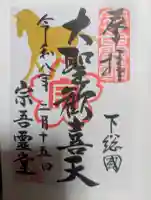 奉拝
下総國
大聖歓喜天
令和八年二月十五日
宗吾霊堂